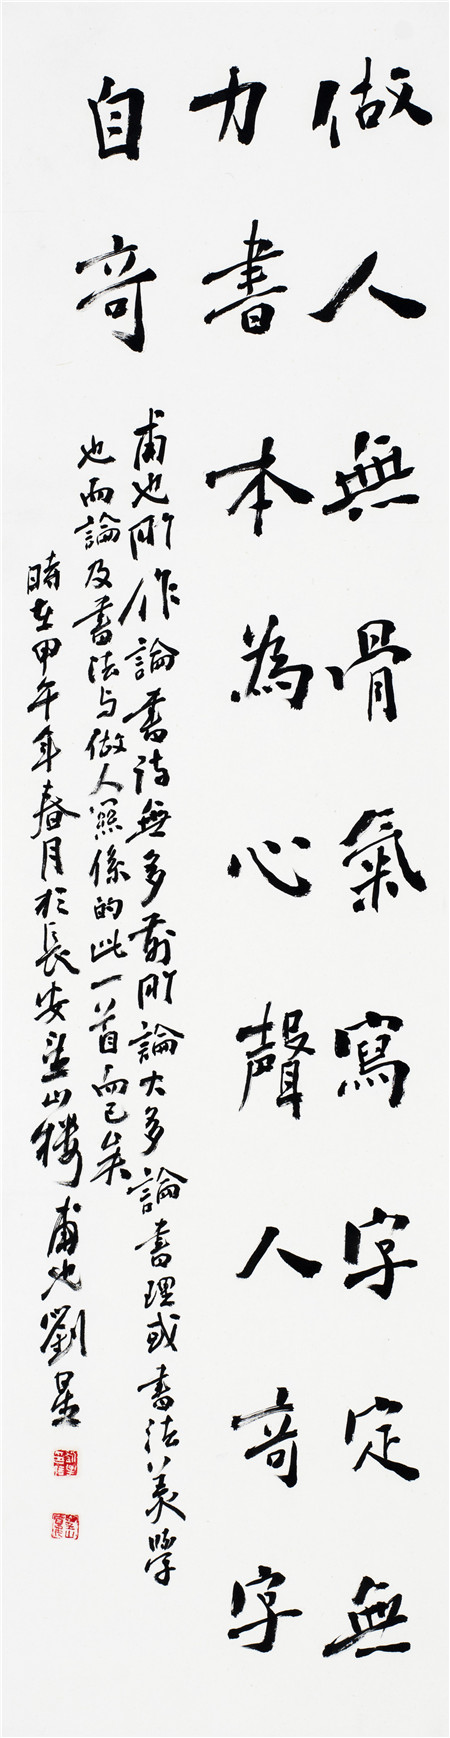 做人無骨氣寫字定無
力書本為心聲人竒字
自竒
甫也所作論書詩無多前所論大多論書理或書法美學
也而論及書法与做人關係的此一首而已矣
時在甲午年春月於長安 山樓甫也劉星